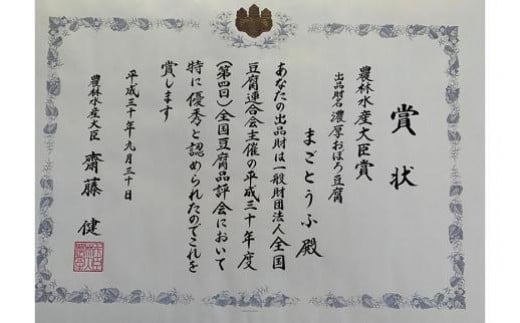 賞状
農林水産大臣賞
出品財名 濃厚おぼろ豆腐
まごとうふ殿
あなたの出品財は一般財団法人全国
豆腐連合会主催の平成三十年度
(第四回)全国豆腐品評会において
特に優秀と認められたのでこれを
賞します
平成三十年九月三十日
農林水産大臣 齋藤 健